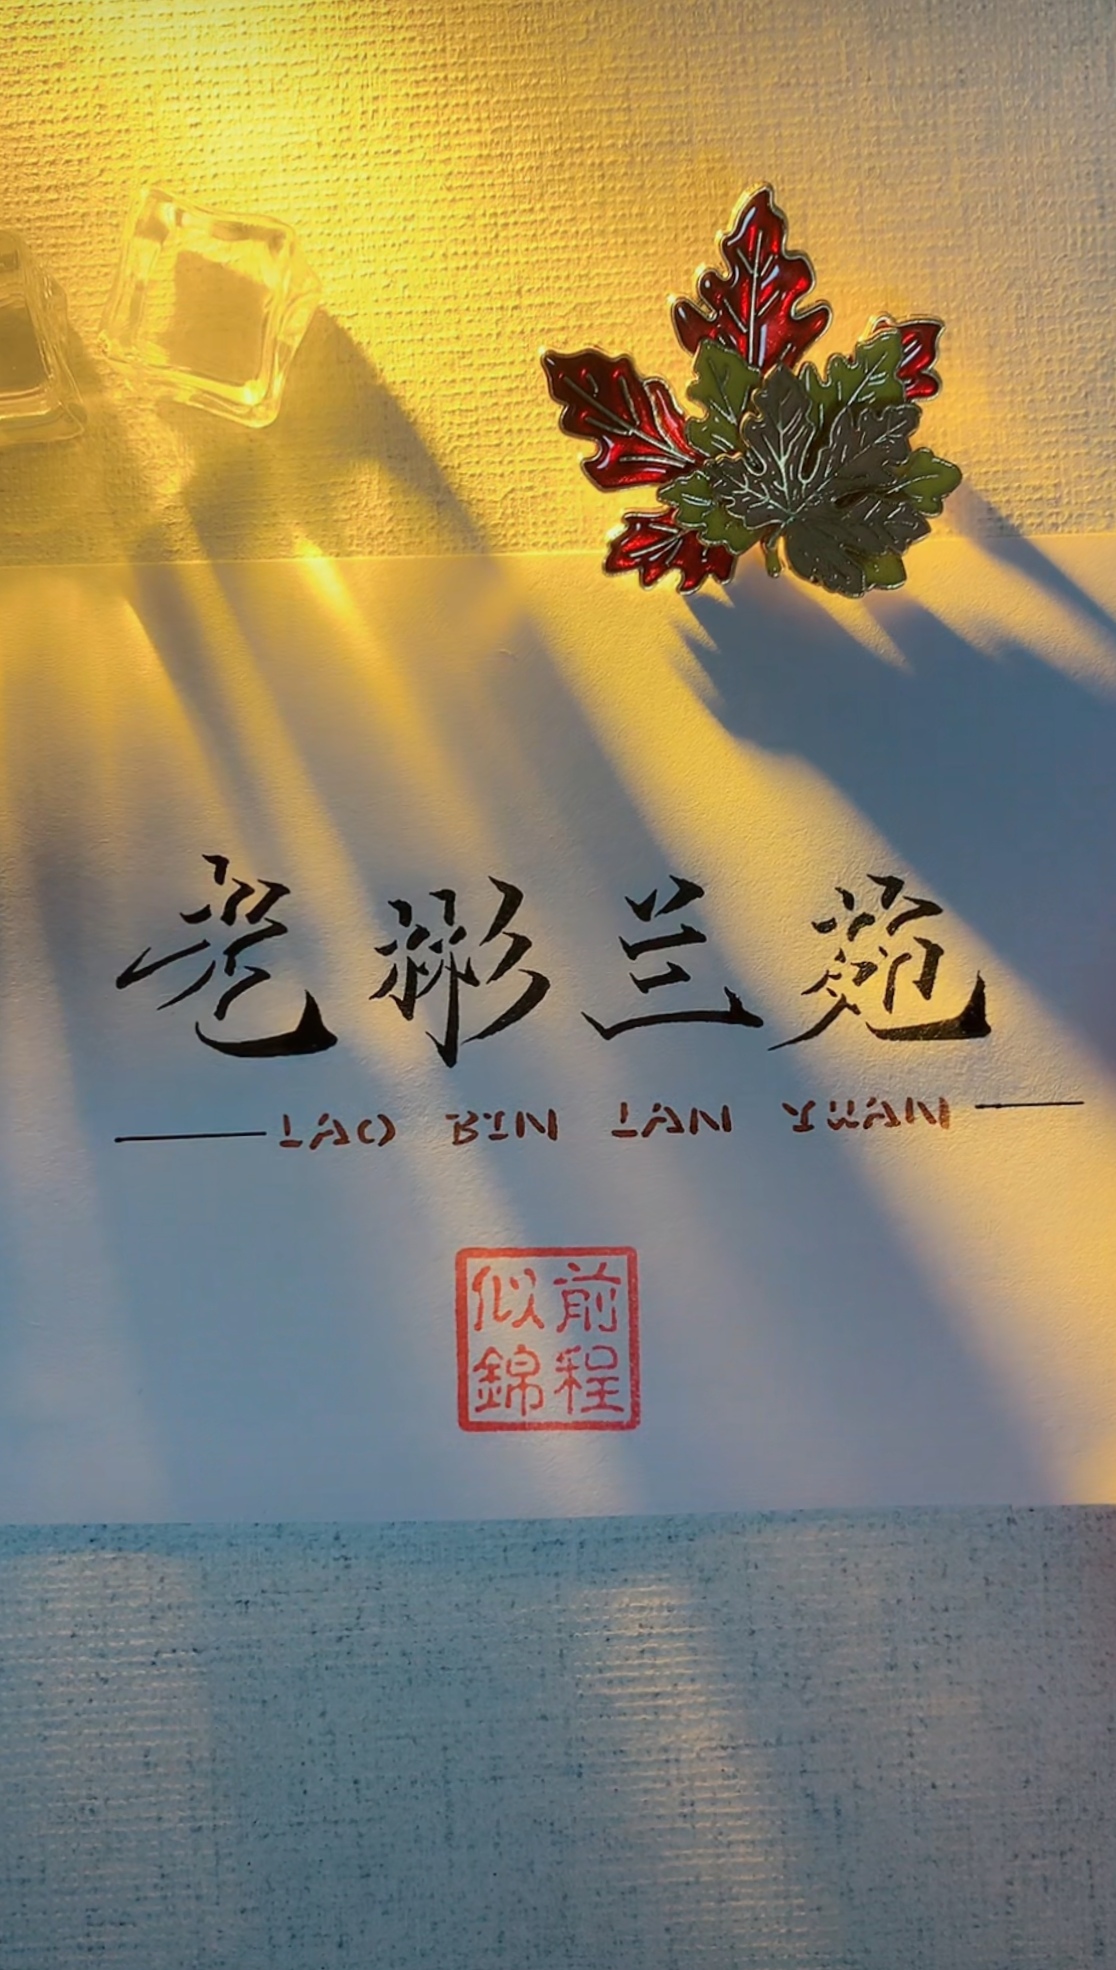 老彬兰苑
LAO BIN LAN YUAN
前程
似錦